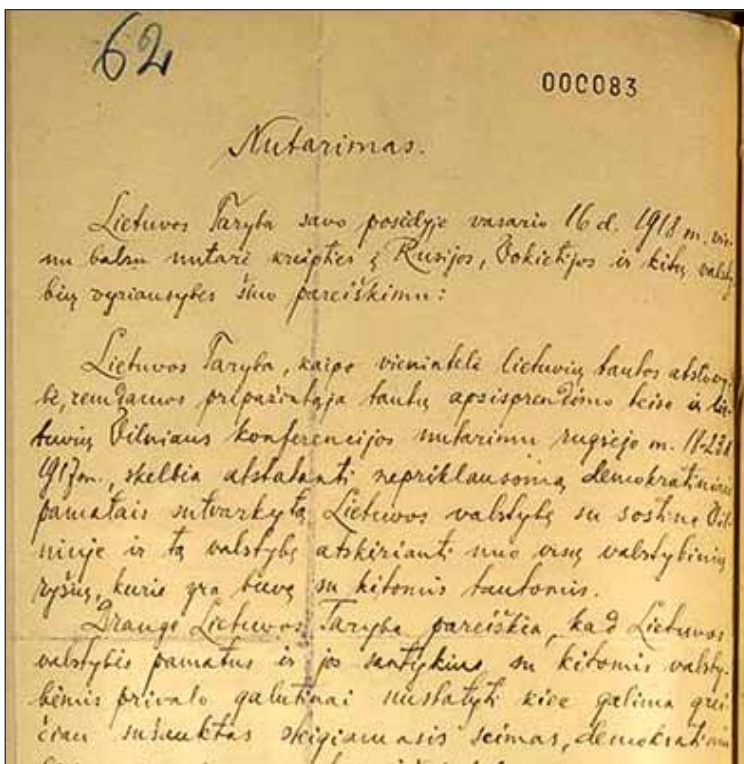 62
000083
Nutarimas.
Lietuvos Taryba savo posėdyje vasario 16 d. 1918 m. vie-
nu balsu nutarė kreipties į Rusijos, Vokietijos ir kitų valsty-
bių vyriausybes šiuo pareiškimu:
Lietuvos Taryba, kaipo vienintelė lietuvių tautos atstovy-
bė, remdamos pripažintąja tautų apsisprendimo teise ir lie-
tuvių Vilniaus konferencijos nutarimu rugsėjo m. 18-23 d
1917 m., skelbia atstatanti nepriklausomą, demokratiniais
pamatais sutvarkytą Lietuvos valstybę su sostine Vil-
niuje ir tą valstybę atskirianti nuo visų valstybinių
ryšių, kurie yra buvę su kitomis tautomis.
Drauge Lietuvos Taryba pareiškia, kad Lietuvos
valstybės pamatus ir jos santykius su kitomis valsty-
bėmis privalo galutinai nustatyti kiek galima grei-
čiau sušauktas steigiamasis seimas, demokratiniu